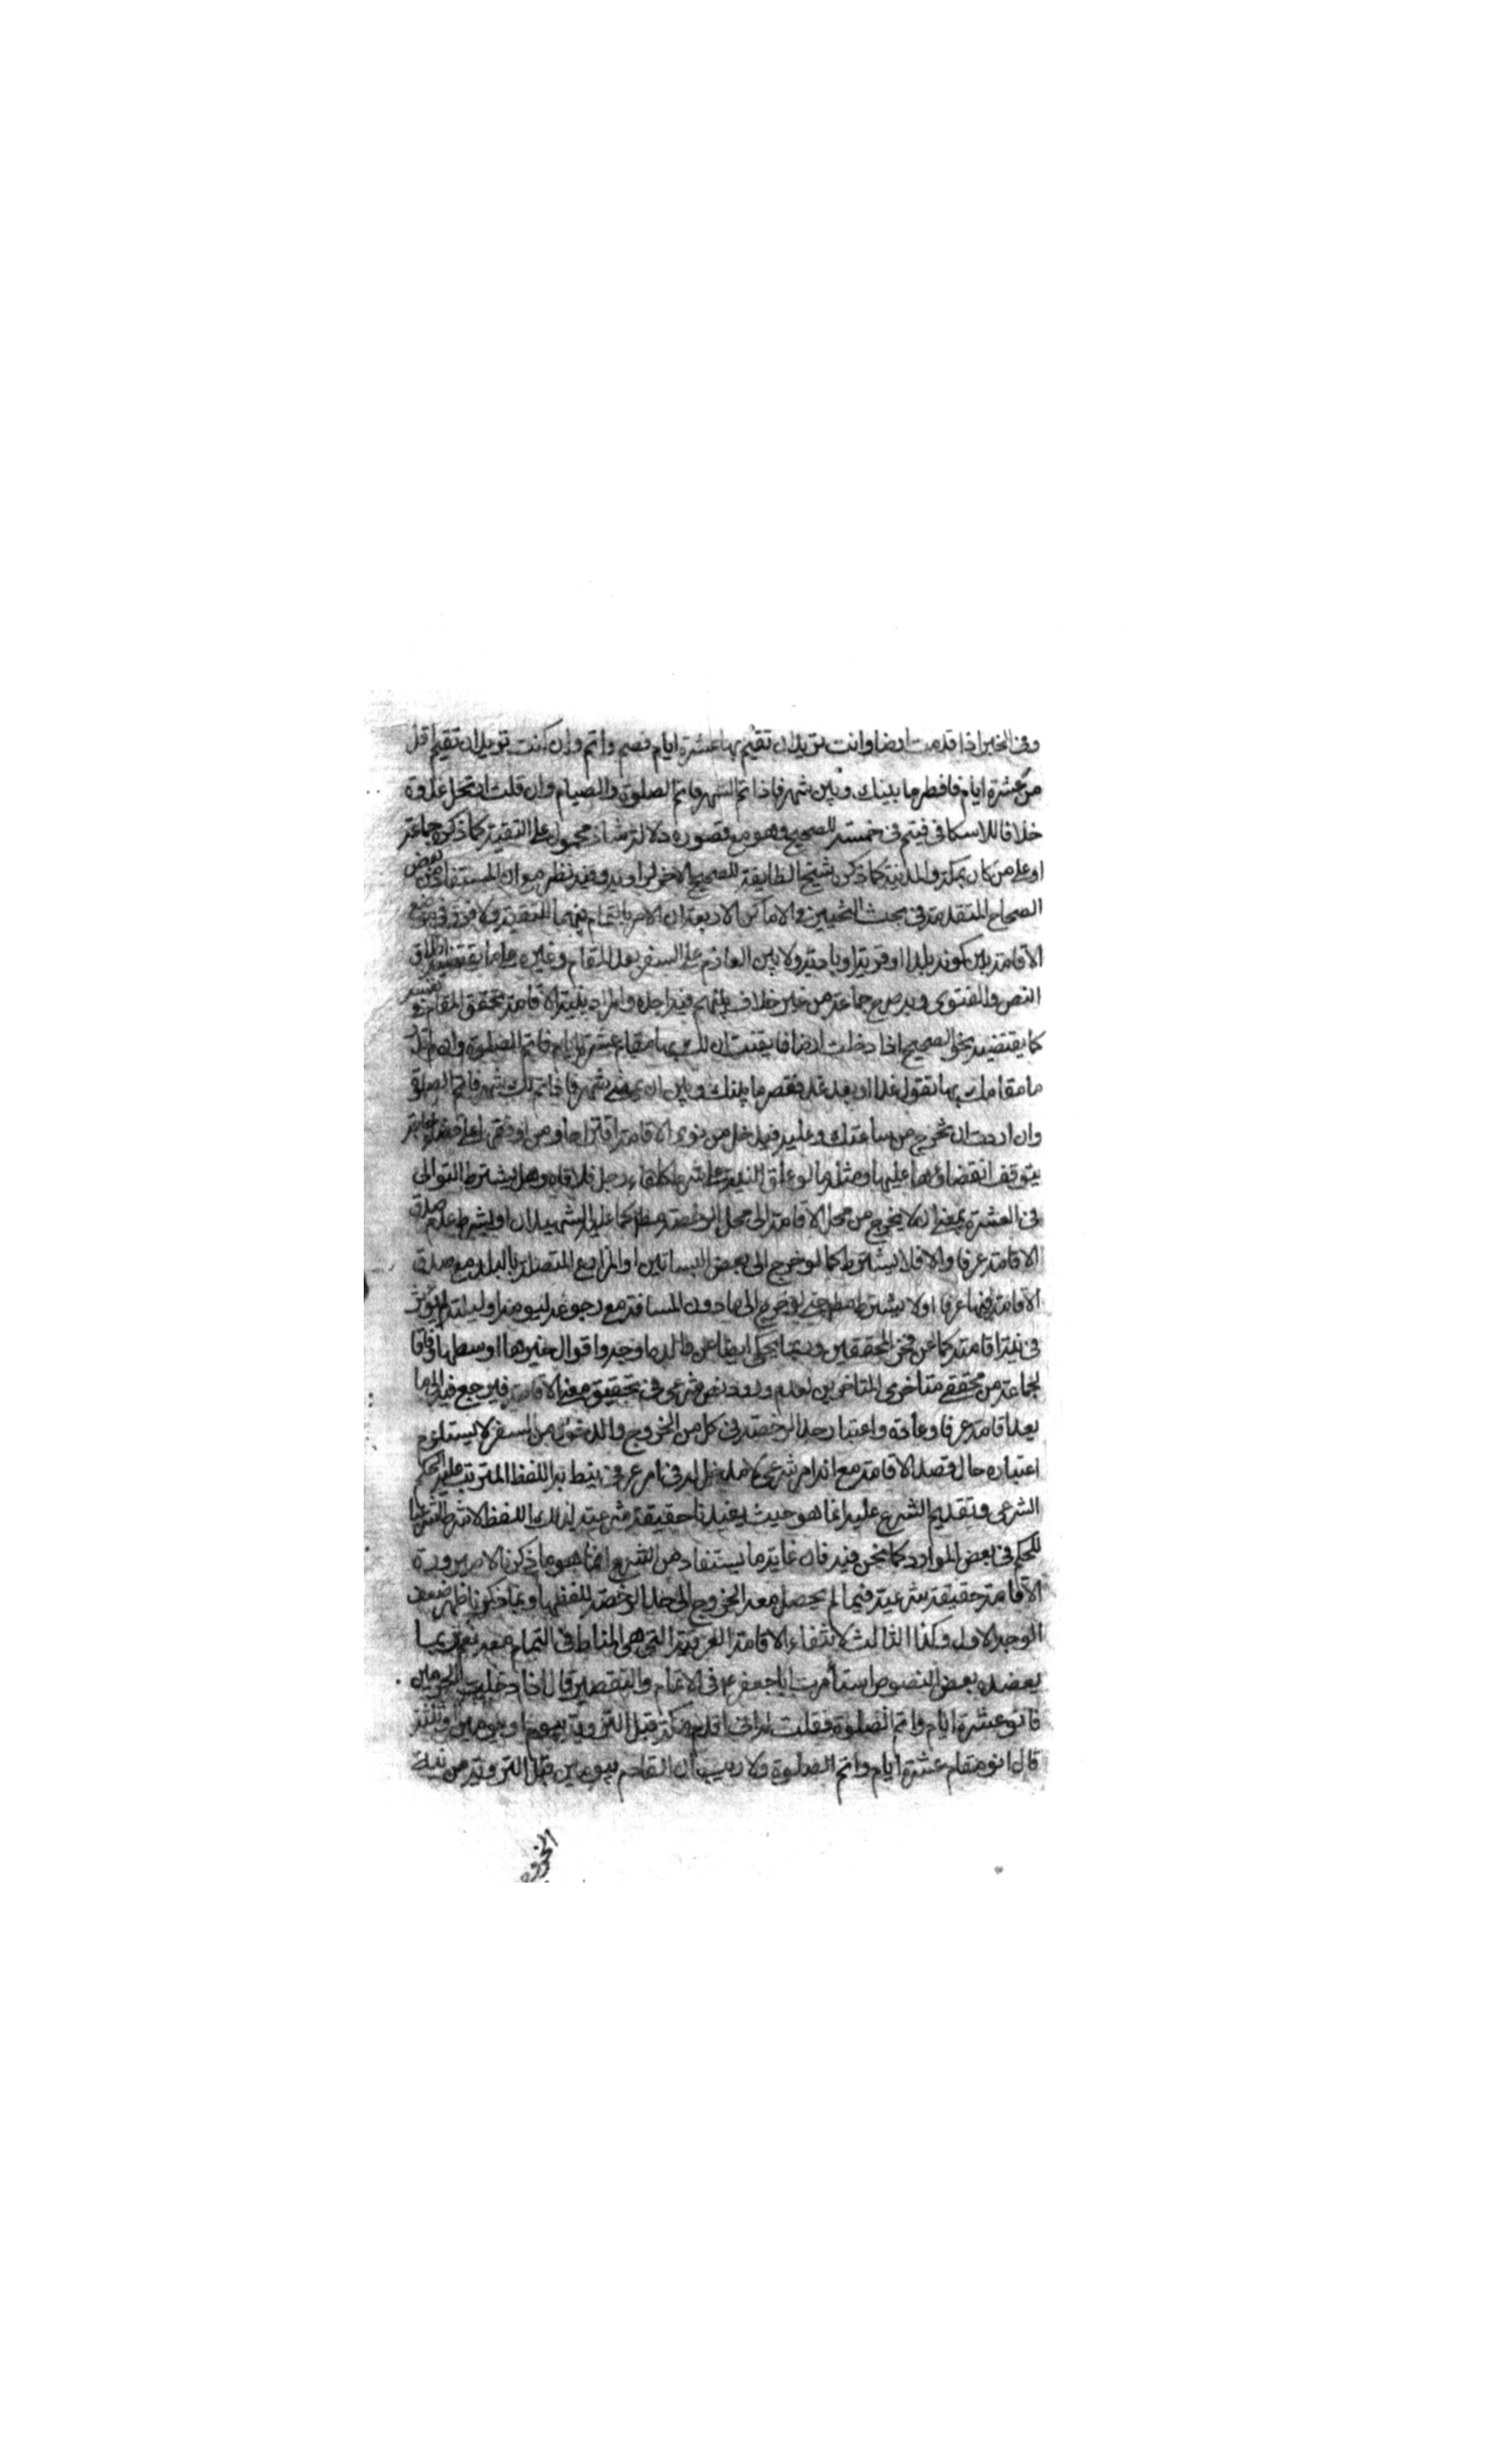 وفى الخبر اذا قدمت ارضا وانت تريد ان تقيم بها عشرة ايام فصم واتم وان كنت تريد ان تقيم اقل
من عشرة ايام فافطر ما بينك وبين شهر فاذا تم الشهر فاتم الصلوة والصيام وان قلت ارتحل غدوة
خلافا للاسكافى فيتم فى خمسة للصحيح وهو مع قصوره دلالة شاذ محمول على التقية كما ذكره جماعة
او على من كان بمكة والمدينة كما ذكره شيخ الطايفة للصحيح الاخر لراويه وفيه نظر مع ان المستفاد من بعض
الصحاح المتقدمة فى بحث التخيير والاماكن الاربعة ان الامر بالتمام فيهما للتقية ولا فرق فى موضع
الاقامة بين كونه بلدا او قرية او بادية ولا بين العازم على السفر بعد المقام وغيره على ما يقتضيه اطلاق
النص والفتوى وبه صرح جماعة من غير خلاف بينهم فيه اجده والمراد بنية الاقامة تحقق المقام
كما يقتضيه نحو الصحيح اذا دخلت ارضا فايقنت ان لك بها مقام عشرة ايام فاتم الصلوة وان لم تدر
ما مقامك بها تقول غدا او بعد غد فقصر ما بينك وبين ان يمضى شهر فاذا تم لك شهر فاتم الصلوة
وان اردت ان تخرج من ساعتك وعليه فيدخل من نوى الاقامة
يتوقف انقضاؤها عليها ومثله ما لو علق النية على شرط كلقاء رجل فلاقاه وهل يشترط التوالى
فى العشرة بمعنى ان لا يخرج من محل الاقامة الى محل الرخصة مطلقا كما عليه الشهيدان او يشترط عدم صدق
الاقامة عرفا والا فلا يشترط كما لو خرج الى بعض البساتين او المزارع المتصلة بالبلد مع صدق
الاقامة فيها عرفا او لا يشترط مطلقا حتى لو خرج الى ما دون المسافة مع رجوعه ليومه او ليلته لم يؤثر
فى نية اقامته كما عن فخر المحققين وربما يحكى ايضا عن والده اوجه واقوال خيرها اوسطها وفاقا
لجماعة من محققى متاخرى المتاخرين لعدم ورود نص شرعى فى تحقيق معنى الاقامة فيرجع فيه الى ما
يعد اقامة عرفا وعادة واعتبار حد الرخصة فى كل من الخروج والدخول من السفر لا يستلزم
اعتباره حال قصد الاقامة مع انه امر شرعى لا مدخل له فى امر عرفى ينط به اللفظ المترتب عليه الحكم
الشرعى وتقديم الشرع عليه انما هو حيث يفيدنا حقيقة شرعية لذلك اللفظ لا شرطا شرعيا
للحكم فى بعض الموارد كما نحن فيه فان غاية ما يستفاد من الشرع انما هو ما ذكرنا لا صيرورة
الاقامة حقيقة شرعية فيما لم يحصل معه الخروج الى حد الرخصة للفظها وبما ذكرنا ظهر ضعف
الوجه الاول وكذا الثالث لانتفاء الاقامة العرفية التى هى المناط فى التمام معه نعم ربما
يعضده بعض النصوص استأمرت ابا جعفر ع فى الاتمام والتقصير قال اذا دخلت الحرمين
فانو عشرة ايام واتم الصلوة فقلت له انى اقدم مكة قبل التروية بيوم او يومين او ثلثة
قال انو مقام عشرة ايام واتم الصلوة ولا ريب ان القادم بيومين قبل التروية من نيته
الخروج